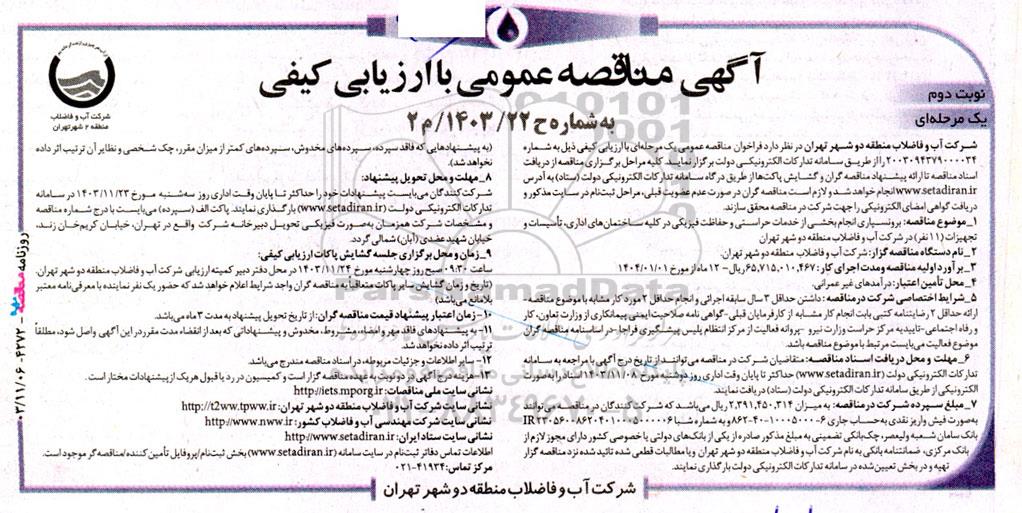 آگهی مناقصه عمومی با ارزیابی کیفی
به شماره ح ۲۲/م۱۴۰۳/۲
نوبت دوم
یک مرحله‌ای
شرکت آب و فاضلاب
منطقه ۲ شهر تهران
شرکت آب و فاضلاب منطقه دو شهر تهران در نظر دارد فراخوان مناقصه عمومی یک مرحله‌ای با ارزیابی کیفی ذیل به شماره
۲۰۰۳۰۹۴۳۷۹۰۰۰۰۳۴ را از طریق سامانه تدارکات الکترونیکی دولت برگزار نماید. کلیه مراحل برگزاری مناقصه از دریافت
اسناد مناقصه تا ارائه پیشنهاد مناقصه گران و گشایش پاکت‌ها از طریق درگاه سامانه تدارکات الکترونیکی دولت (ستاد) به آدرس
www.setadiran.ir انجام خواهد شد و لازم است مناقصه گران در صورت عدم عضویت قبلی، مراحل ثبت‌نام در سایت مذکور و
دریافت گواهی امضای الکترونیکی را جهت شرکت در مناقصه محقق سازند.
۱_موضوع مناقصه: برونسپاری انجام بخشی از خدمات حراستی و حفاظت فیزیکی در کلیه ساختمان‌های اداری، تأسیسات و
تجهیزات (۱۱ نفر) در شرکت آب و فاضلاب منطقه دو شهر تهران
۲_نام دستگاه مناقصه گزار: شرکت آب و فاضلاب منطقه دو شهر تهران.
۳_برآورد اولیه مناقصه و مدت اجرای کار: ۶۵,۷۱۵,۰۱۰,۴۶۷ ریال- ۱۲ ماه از مورخ ۱۴۰۴/۰۱/۰۱
۴_محل تأمین اعتبار: درآمدهای غیر عمرانی.
۵_شرایط اختصاصی شرکت در مناقصه: داشتن حداقل ۳ سال سابقه اجرائی و انجام حداقل ۲ مورد کار مشابه با موضوع مناقصه-
ارائه حداقل ۲ رضایتنامه کتبی بابت انجام کار مشابه از کارفرمایان قبلی- گواهی نامه صلاحیت ایمنی پیمانکاری از وزارت تعاون، کار
و رفاه اجتماعی-تاییدیه مرکز حراست وزارت نیرو -پروانه فعالیت از مرکز انتظام پلیس پیشگیری فراجا- در اساسنامه مناقصه گران
موضوع فعالیت می‌بایست مرتبط با موضوع مناقصه باشد.
۶_مهلت و محل دریافت اسناد مناقصه: متقاضیان شرکت در مناقصه می‌توانند از تاریخ درج آگهی با مراجعه به سامانه
تدارکات الکترونیکی دولت (www.setadiran.ir) حداکثر تا پایان وقت اداری روز دوشنبه مورخ ۱۴۰۳/۱۱/۰۸ اسناد را به صورت
الکترونیکی از طریق سامانه تدارکات الکترونیکی دولت (ستاد) دریافت نمایند.
۷_مبلغ سپرده شرکت در مناقصه: به میزان ۲,۳۹۱,۴۵۰,۳۱۴ ریال می‌باشد که شرکت کنندگان در مناقصه می‌توانند
به صورت فیش واریز نقدی به حساب جاری ۶-۱۰۰۰۵۰۰۰-۴۰-۸۶۲ و به شماره شبا
بانک سامان شعبه ولیعصر، چک بانکی تضمینی به مبلغ مذکور صادره از یکی از بانک‌های دولتی یا خصوصی کشور دارای مجوز لازم از
بانک مرکزی، ضمانتنامه بانکی به نام شرکت آب و فاضلاب منطقه دو شهر تهران و یا مطالبات قطعی شده تائید شده نزد مناقصه گزار
تهیه و در بخش تعیین شده در سامانه تدارکات الکترونیکی دولت بارگذاری نمایند.
(به پیشنهادهایی که فاقد سپرده، سپرده‌های مخدوش، سپرده‌های کمتر از میزان مقرر، چک شخصی و نظایر آن ترتیب اثر داده
نخواهد شد).
۸_مهلت و محل تحویل پیشنهاد:
شرکت‌کنندگان می‌بایست پیشنهادات خود را حداکثر تا پایان وقت اداری روز سه‌شنبه مورخ ۱۴۰۳/۱۱/۲۳ در سامانه
تدارکات الکترونیکی دولت (www.setadiran.ir) بارگذاری نمایند. پاکت الف (سپرده) می‌بایست با درج شماره مناقصه
و مشخصات شرکت همزمان به‌صورت فیزیکی تحویل دبیرخانه شرکت واقع در تهران، خیابان کریم‌خان زند،
خیابان شهید عضدی (آبان) شمالی گردد.
۹_زمان و محل برگزاری جلسه گشایش پاکات ارزیابی کیفی:
ساعت ۰۹:۳۰ صبح روز چهارشنبه مورخ ۱۴۰۳/۱۱/۲۴ در محل دفتر دبیر کمیته ارزیابی شرکت آب و فاضلاب منطقه دو شهر تهران.
(تاریخ و زمان گشایش سایر پاکات متعاقباً به مناقصه گران واجد شرایط اعلام خواهد شد که حضور یک نفر نماینده با معرفی‌نامه معتبر
بلامانع می‌باشد)
۱۰-زمان اعتبار پیشنهاد قیمت مناقصه گران: از تاریخ تحویل پیشنهاد به مدت ۳ ماه می‌باشد.
۱۱- به پیشنهادهای فاقد مهر و امضاء، مشروط، مخدوش و پیشنهاداتی که بعد از انقضاء مدت مقرر در این آگهی واصل شود، مطلقاً
ترتیب اثر داده نخواهد شد.
۱۲- سایر اطلاعات و جزئیات مربوطه، در اسناد مناقصه مندرج می‌باشد.
۱۳-هزینه درج آگهی در دو نوبت به عهده مناقصه گزار است و کمیسیون در رد یا قبول هر یک از پیشنهادات مختار است.
نشانی سایت ملی مناقصات: http://iets.mporg.ir
نشانی سایت شرکت آب و فاضلاب منطقه دو شهر تهران: http://t2ww.tpww.ir
نشانی سایت شرکت مهندسی آب و فاضلاب کشور: http://www.nww.ir
نشانی سایت ستاد ایران: http://www.setadiran.ir
اطلاعات تماس دفاتر ثبت‌نام در سایت سامانه (www.setadiran.ir) بخش ثبت‌نام/پروفایل تأمین کننده/مناقصه‌گر موجود است.
مرکز تماس: ۴۱۹۳۴-۰۲۱
شرکت آب و فاضلاب منطقه دو شهر تهران
روزنامه مناقصه
ParsNamadData